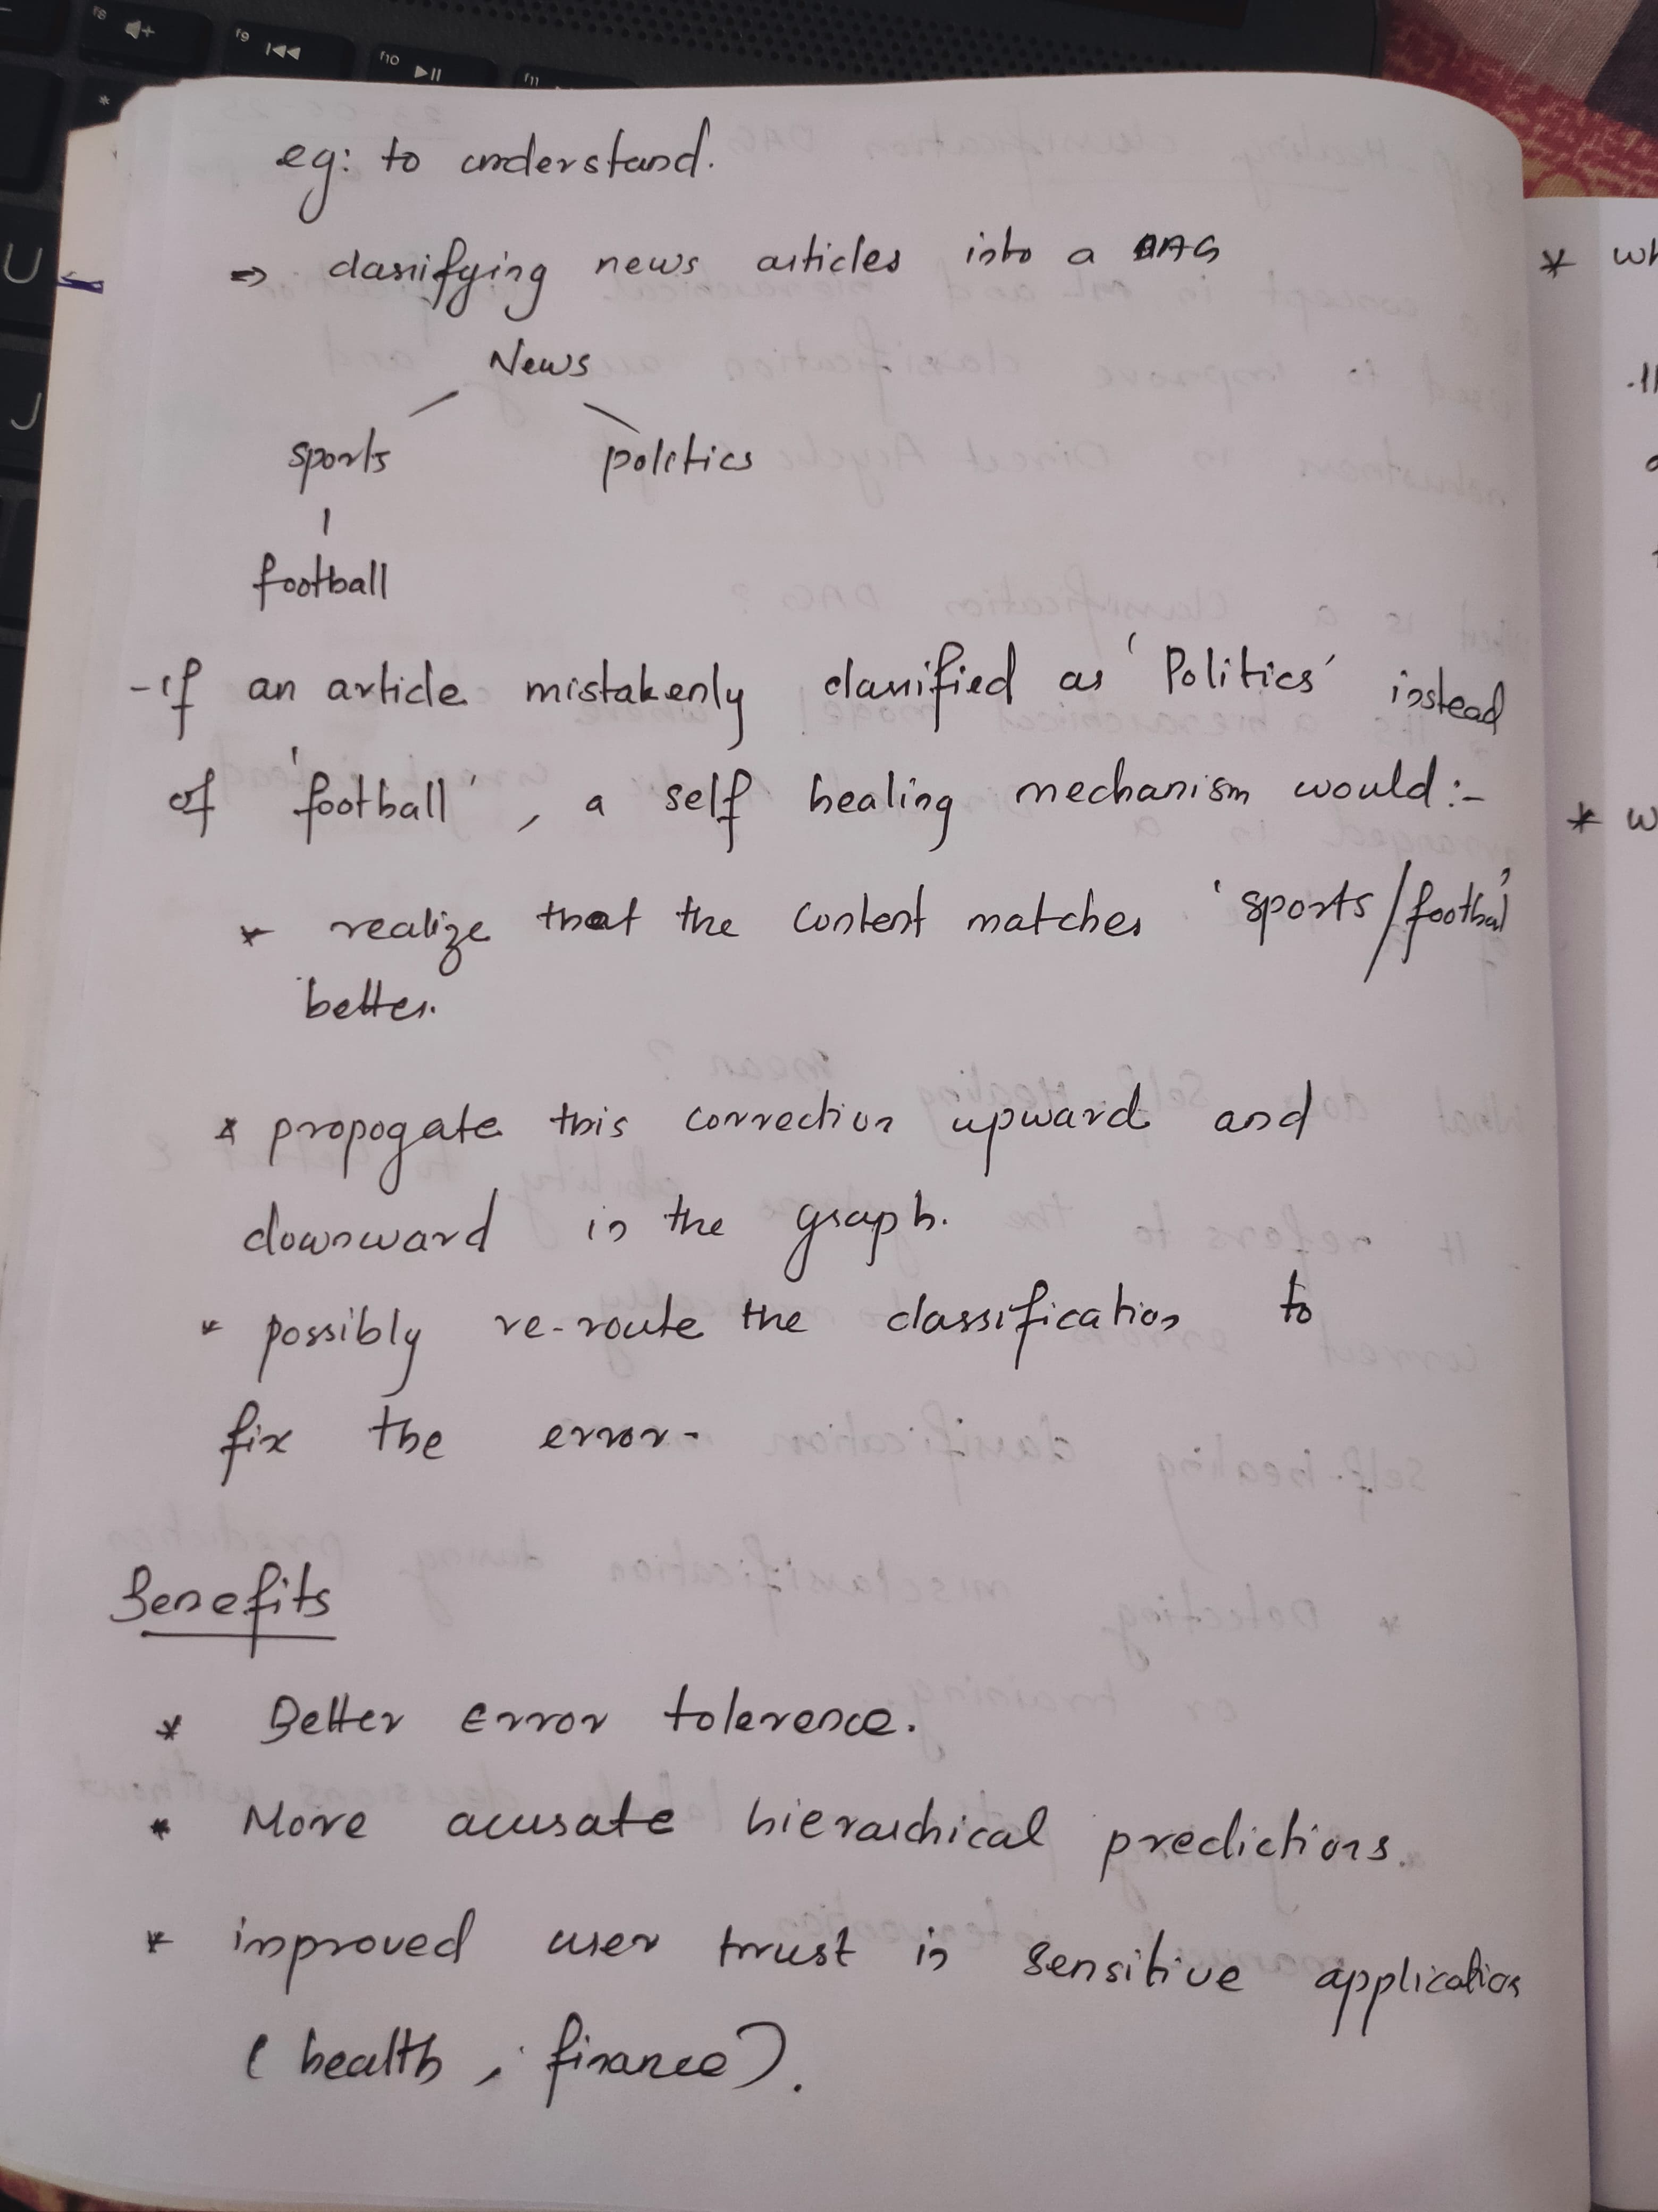 eg: to understand.
⇒ classifying news articles into a DAG
News
sports politics
football
- if an article mistakenly classified as 'Politics' instead
of 'football', a self healing mechanism would:-
* realize that the content matches 'sports/footbal'
better.
* propogate this correction upward and
downward in the graph.
* possibly re-route the classification to
fix the error.
Benefits
* Better Error tolerence.
* More accurate hierarchical predictions.
* improved user trust in sensitive application
(health, finance).